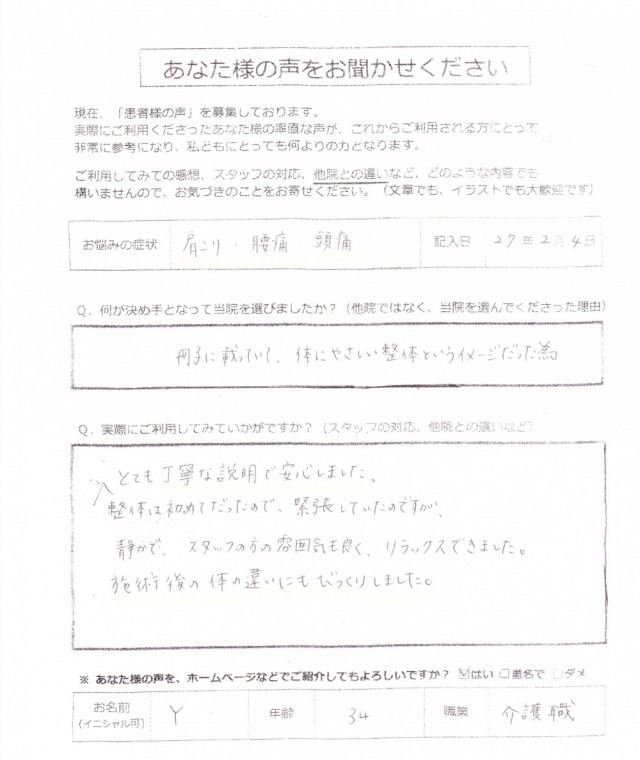 あなた様の声をお聞かせください
現在、「患者様の声」を募集しております。
実際にご利用くださったあなた様の率直な声が、これからご利用される方にとって
非常に参考になり、私どもにとっても何よりの力となります。
ご利用してみての感想、スタッフの対応、他院との違いなど、どのような内容でも
構いませんので、お気づきのことをお寄せください。（文章でも、イラストでも大歓迎です）
お悩みの症状 肩こり・腰痛・頭痛 記入日 27年2月4日
Q．何が決め手となって当院を選びましたか？（他院ではなく、当院を選んでくださった理由）
冊子に載っていて、体にやさしい整体というイメージだった為
Q．実際にご利用してみていかがですか？（スタッフの対応、他院との違いなど）
とても丁寧な説明で安心しました。
整体は初めてだったので、緊張していたのですが、
静かで、スタッフの方の雰囲気も良く、リラックスできました。
施術後の体の違いにもびっくりしました。
※ あなた様の声を、ホームページなどでご紹介してもよろしいですか？ ☑はい □匿名で □ダメ
お名前 Y 年齢 34 職業 介護職
(イニシャル可)